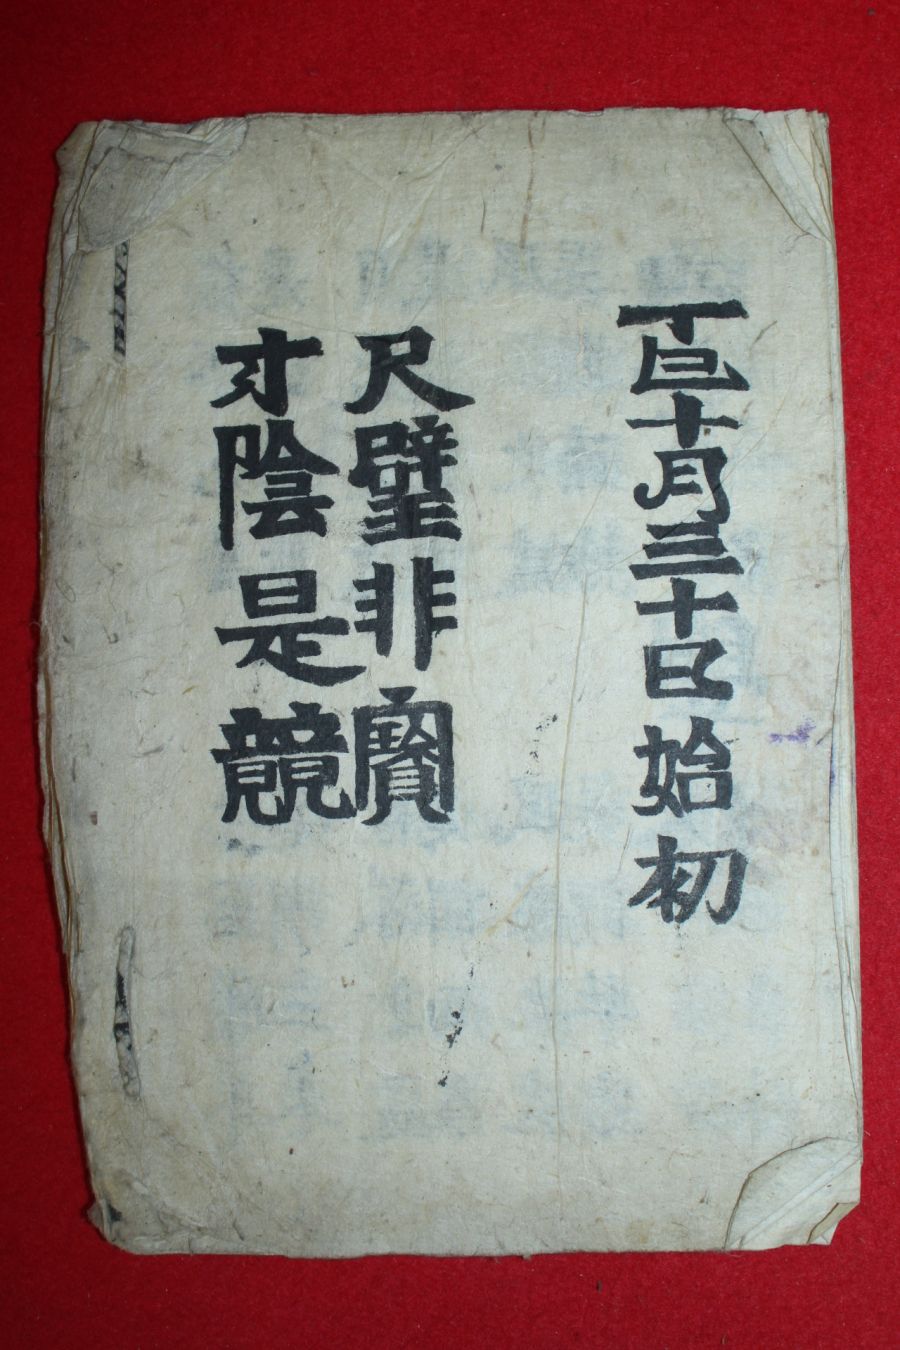 丁巳十月三十日始初
尺璧非寶
寸陰是競